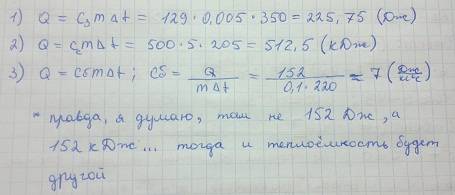 1) Q = c₃m∆t = 129 · 0,005 · 350 = 225,75 (Дж)
2) Q = c₂m∆t = 500 · 5 · 205 = 512,5 (кДж)
3) Q = cбm∆t ; cб = Q/(m∆t) = 152/(0,1 · 220) ≈ 7 (Дж/кг°С)
* правда, я думаю, там не 152 Дж, а
152 кДж... тогда и теплоёмкость будет
другой